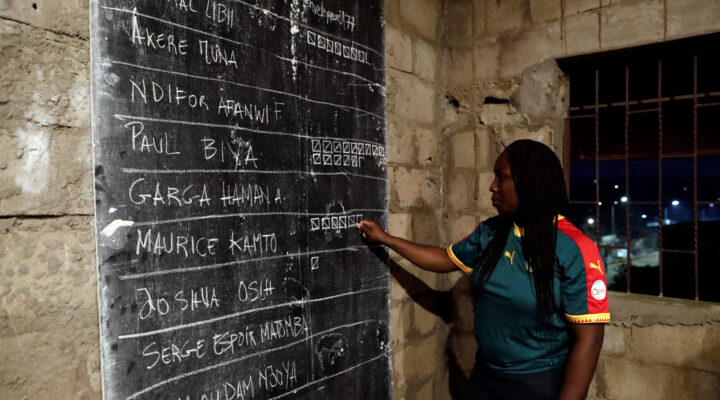 LIBII
AKERE MUNA
NDIFOR AFANWI F
PAUL BIYA
GARGA HAMAN A.
MAURICE KAMTO
JOSHUA OSIH
SERGE ESPOIR MATOMBA
DAM NJOYA